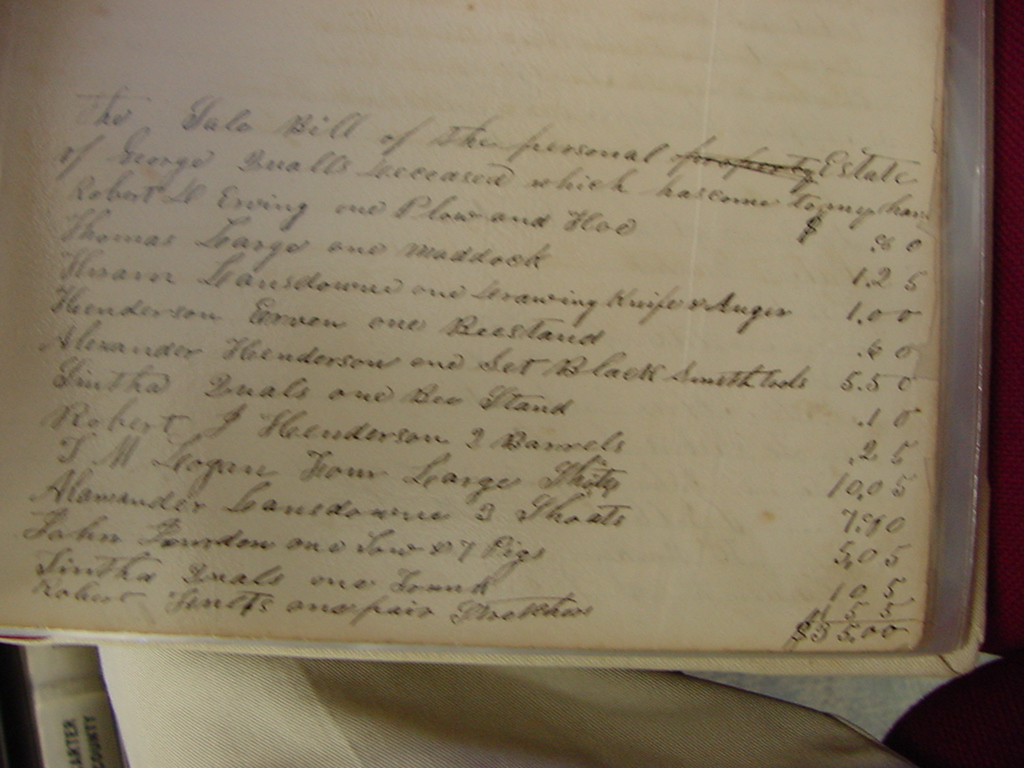 The Sale Bill of the personal property Estate
of George Qualls Deceased which has come to my han
Robert D Erving one Plow and Hoe $ .80
Thomas Large one Maddock 1.25
Hiram Lansdowne one Drawing Knife & Auger 1.00
Henderson Erven one Beestand .60
Alexander Henderson one Set Black Smith tools 5.50
Sintha Quals one Bee Stand .10
Robert J Henderson 2 Barrels .25
T M Logan Four Large 10.05
Alamander Lansdowne 3 Shoats 7.90
John one Sow & 7 Pigs 5.05
Sintha Quals one Trunk 10 5
Robert one pair 1 5 5
$35.00
ARTER
COUNTY